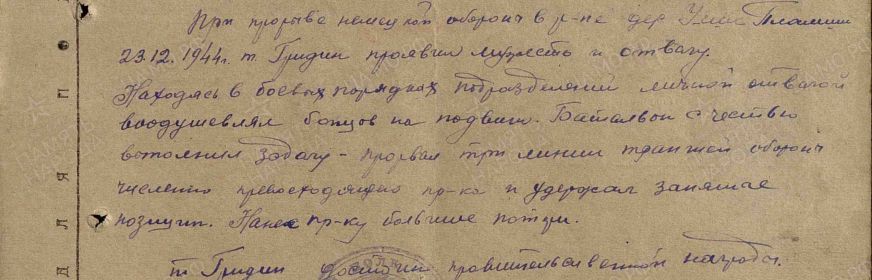 При прорыве немецкой обороны в р-не дер
23.12.1944г. т. Гридин проявил мужество и отвагу.
Находясь в боевых порядках подразделений личной отвагой
воодушевлял бойцов на подвиги. Батальон с честью
выполнил задачу - прорвал три линии траншей обороны
численно превосходящего пр-ка и удержал занятые
позиции. Нанес пр-ку большие потери.
т. Гридин достоин правительственной награды.